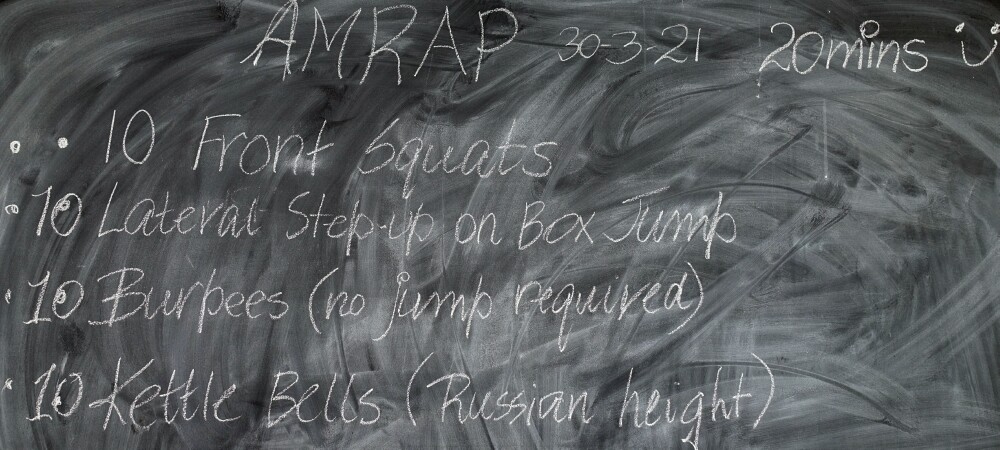 AMRAP 30-3-21 20mins
10 Front Squats
10 Lateral Step-up on Box Jump
10 Burpees (no jump required)
10 Kettle Bells (Russian height)